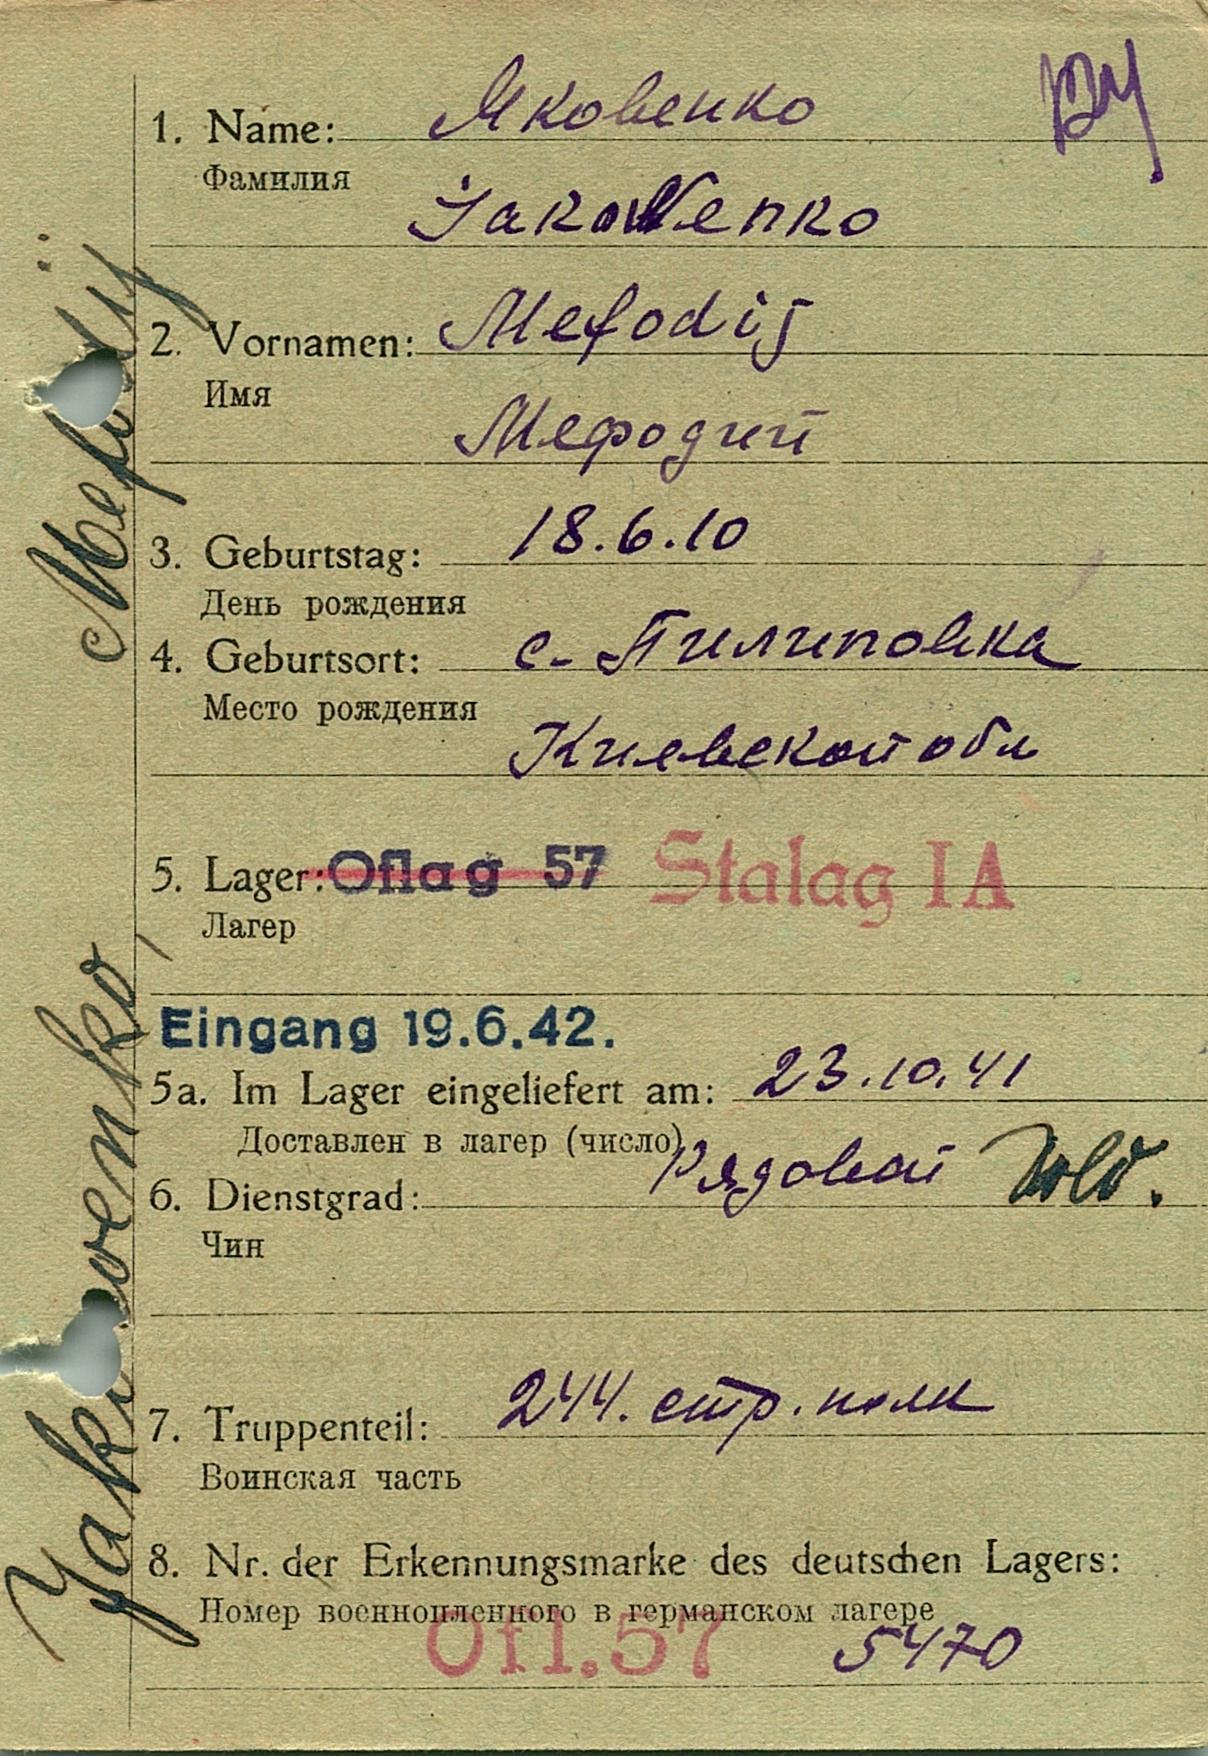 1. Name: Яковенко
Фамилия
Jakowenko
2. Vornamen: Mefodij
Имя
Мефодий
3. Geburtstag: 18.6.10
День рождения
4. Geburtsort: с. Пилиповка
Место рождения
Киевской обл
5. Lager: Oflag 57 Stalag IA
Лагер
Eingang 19.6.42.
5a. Im Lager eingeliefert am: 23.10.41
Доставлен в лагер (число)
6. Dienstgrad: Рядовой Sold.
Чин
7. Truppenteil: 244. стр. полк
Воинская часть
8. Nr. der Erkennungsmarke des deutschen Lagers:
Номер военнопленного в германском лагере
Ofl.57 5470
Jakowenko, Mefodij